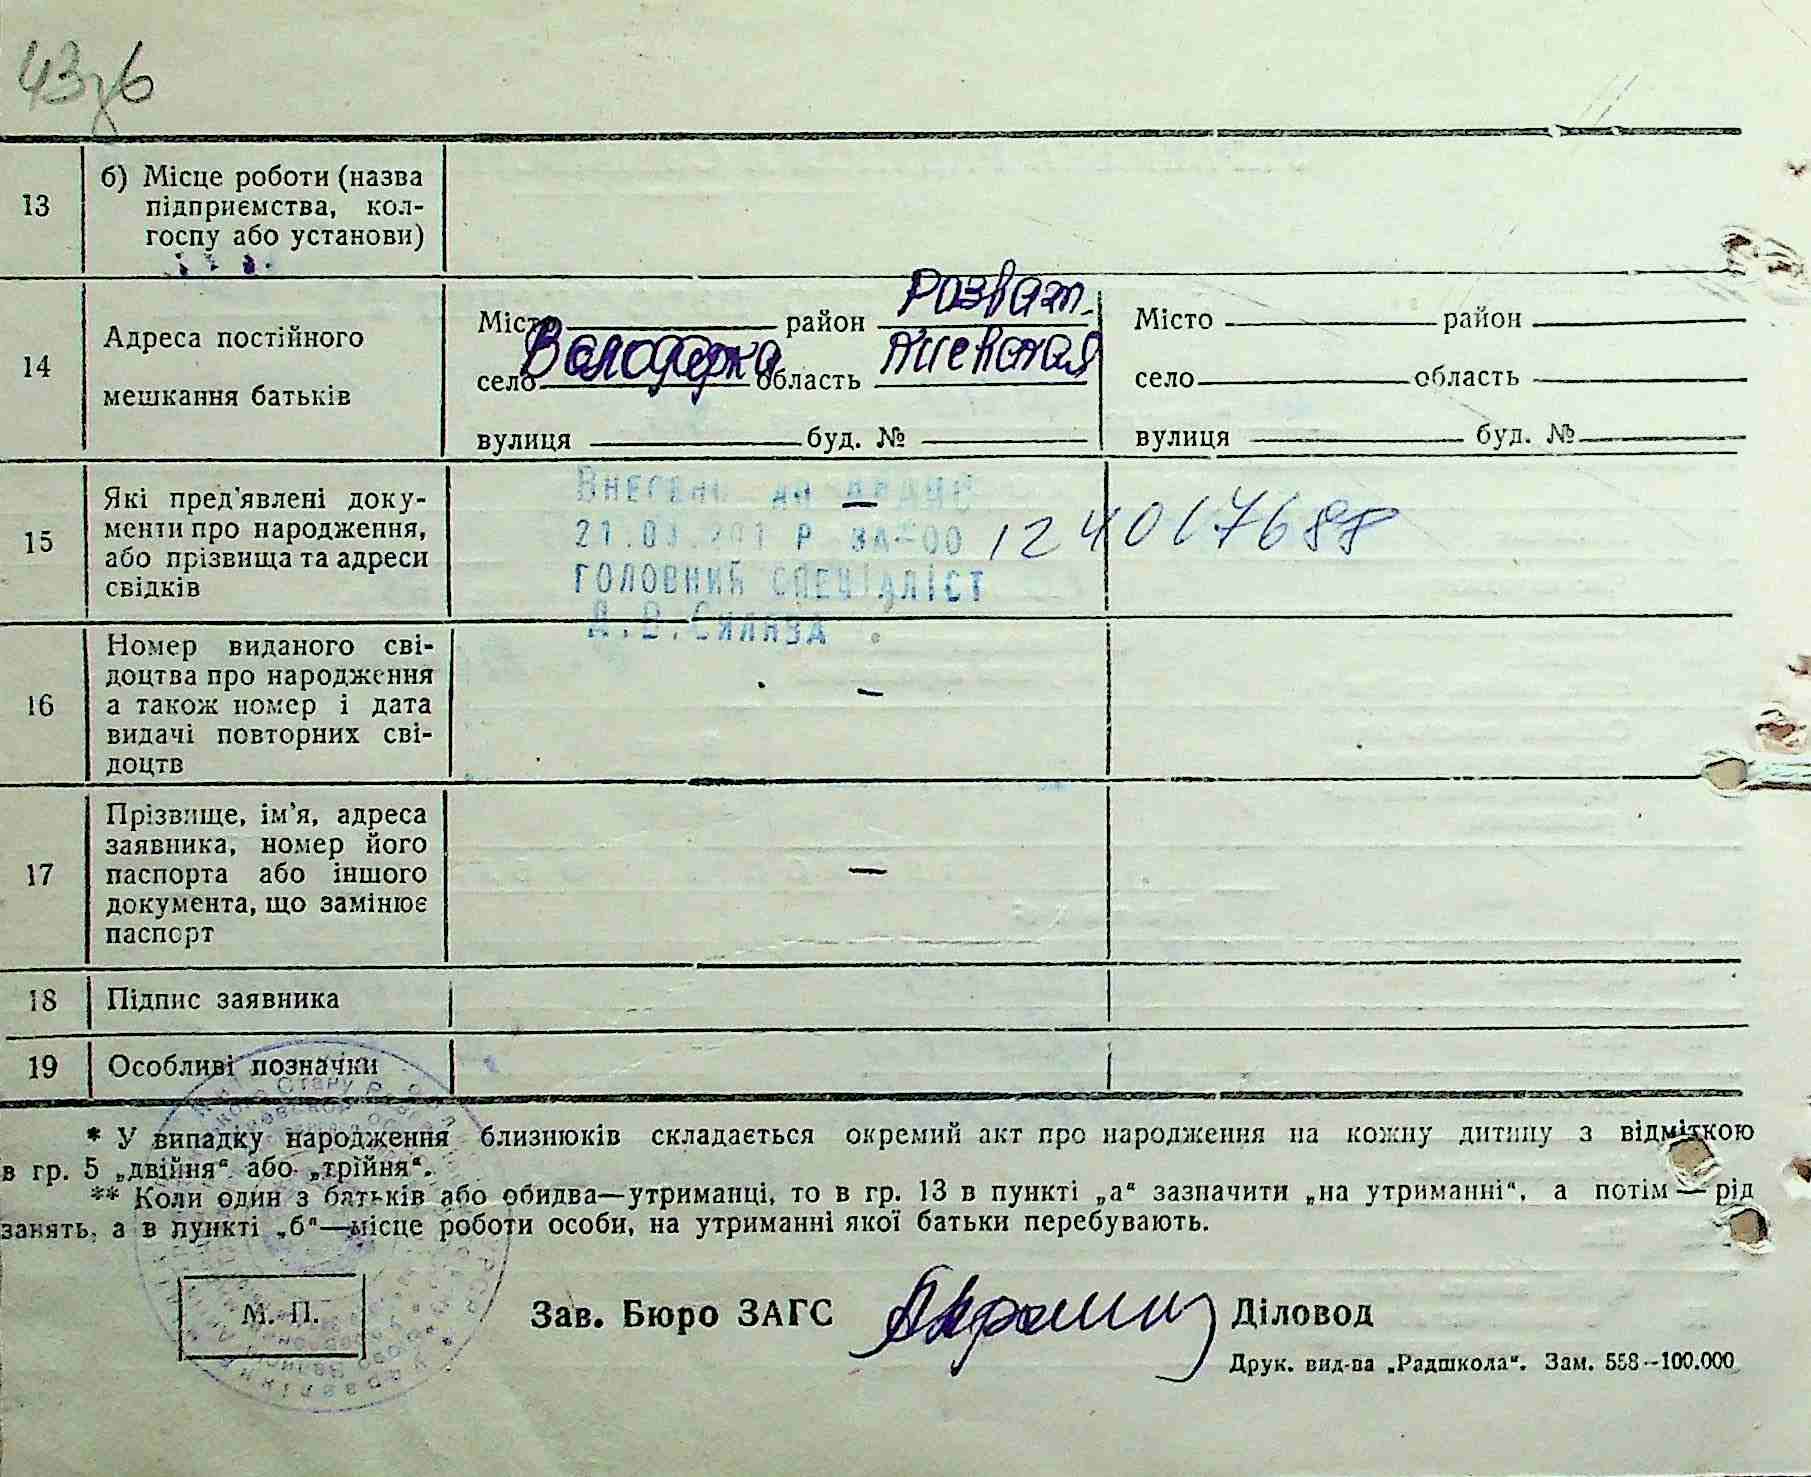 43
13
б) Місце роботи (назва
підприємства, кол-
госпу або установи)
14
Адреса постійного
мешкання батьків
Місто район Розват.
село Володарка область Киевская
вулиця буд. №
Місто район
село область
вулиця буд. №
15
Які пред'явлені доку-
менти про народження,
або прізвища та адреси
свідків
—
ГОЛОВНИЙ СПЕЦІАЛІСТ
16
Номер виданого сві-
доцтва про народження
а також номер і дата
видачі повторних сві-
доцтв
—
17
Прізвище, ім'я, адреса
заявника, номер його
паспорта або іншого
документа, що замінює
паспорт
—
18
Підпис заявника
19
Особливі позначки
* У випадку народження близнюків складається окремий акт про народження на кожну дитину з відміткою
в гр. 5 „двійня“ або „трійня“.
** Коли один з батьків або обидва—утриманці, то в гр. 13 в пункті „а“ зазначити „на утриманні“, а потім — рід
занять, а в пункті „б“—місце роботи особи, на утриманні якої батьки перебувають.
М. П.
Зав. Бюро ЗАГС
Діловод
Друк. вид-ва „Радшкола“. Зам. 558—100.000